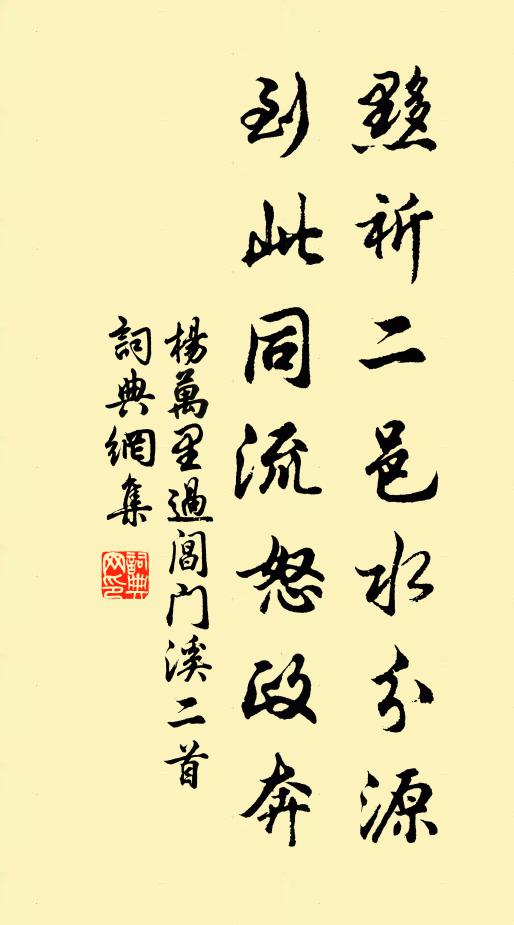 黟祈二邑水分源
到此同流怒政奔
楊萬里過閶门溪二首
詞典網集
詞典網印